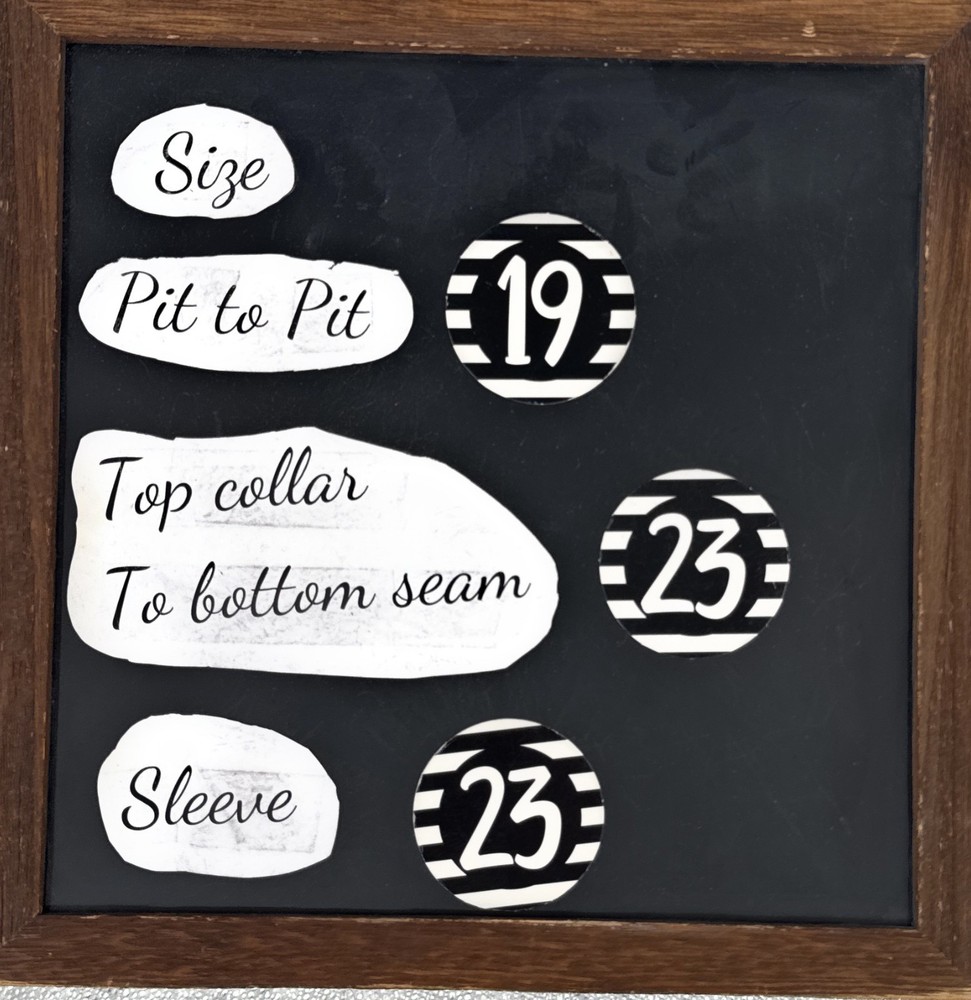 Size
Pit to Pit 19
Top collar
To bottom seam 23
Sleeve 23